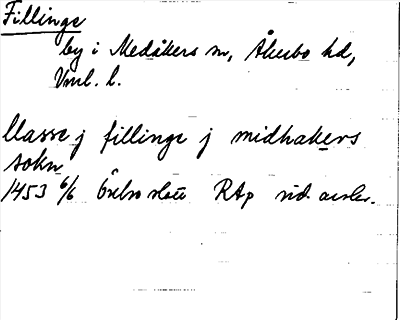 Fillinge
by i Medåkers sn, Åkerbo hd,
Vml. l.
llasse j fillinge j midhakers
sokn
1453 6/6 Örebro slott RAp vid. avskr.